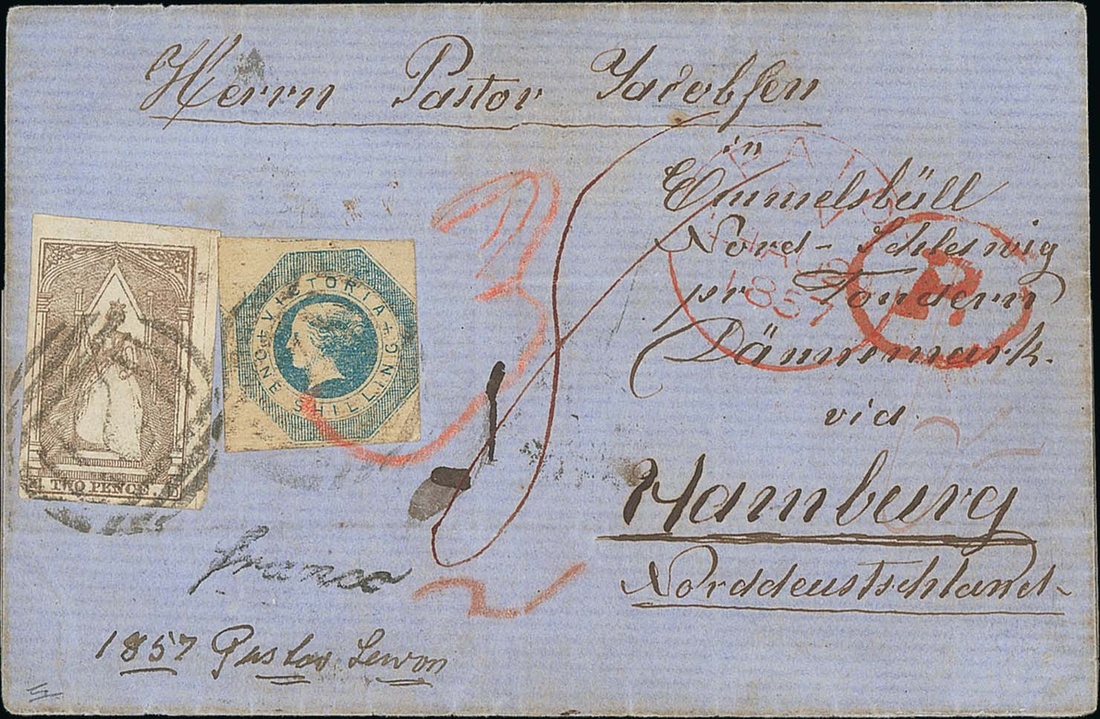 Herrn Pastor Jacobsen
in
Emmelsbüll
Nord-Schleswig
pr Tondern
Dännmark.
via
Hamburg
Norddeutschland
VICTORIA
ONE SHILLING
TWO PENCE
PAID
1857
P.
3
2
franco
1857 Pastor